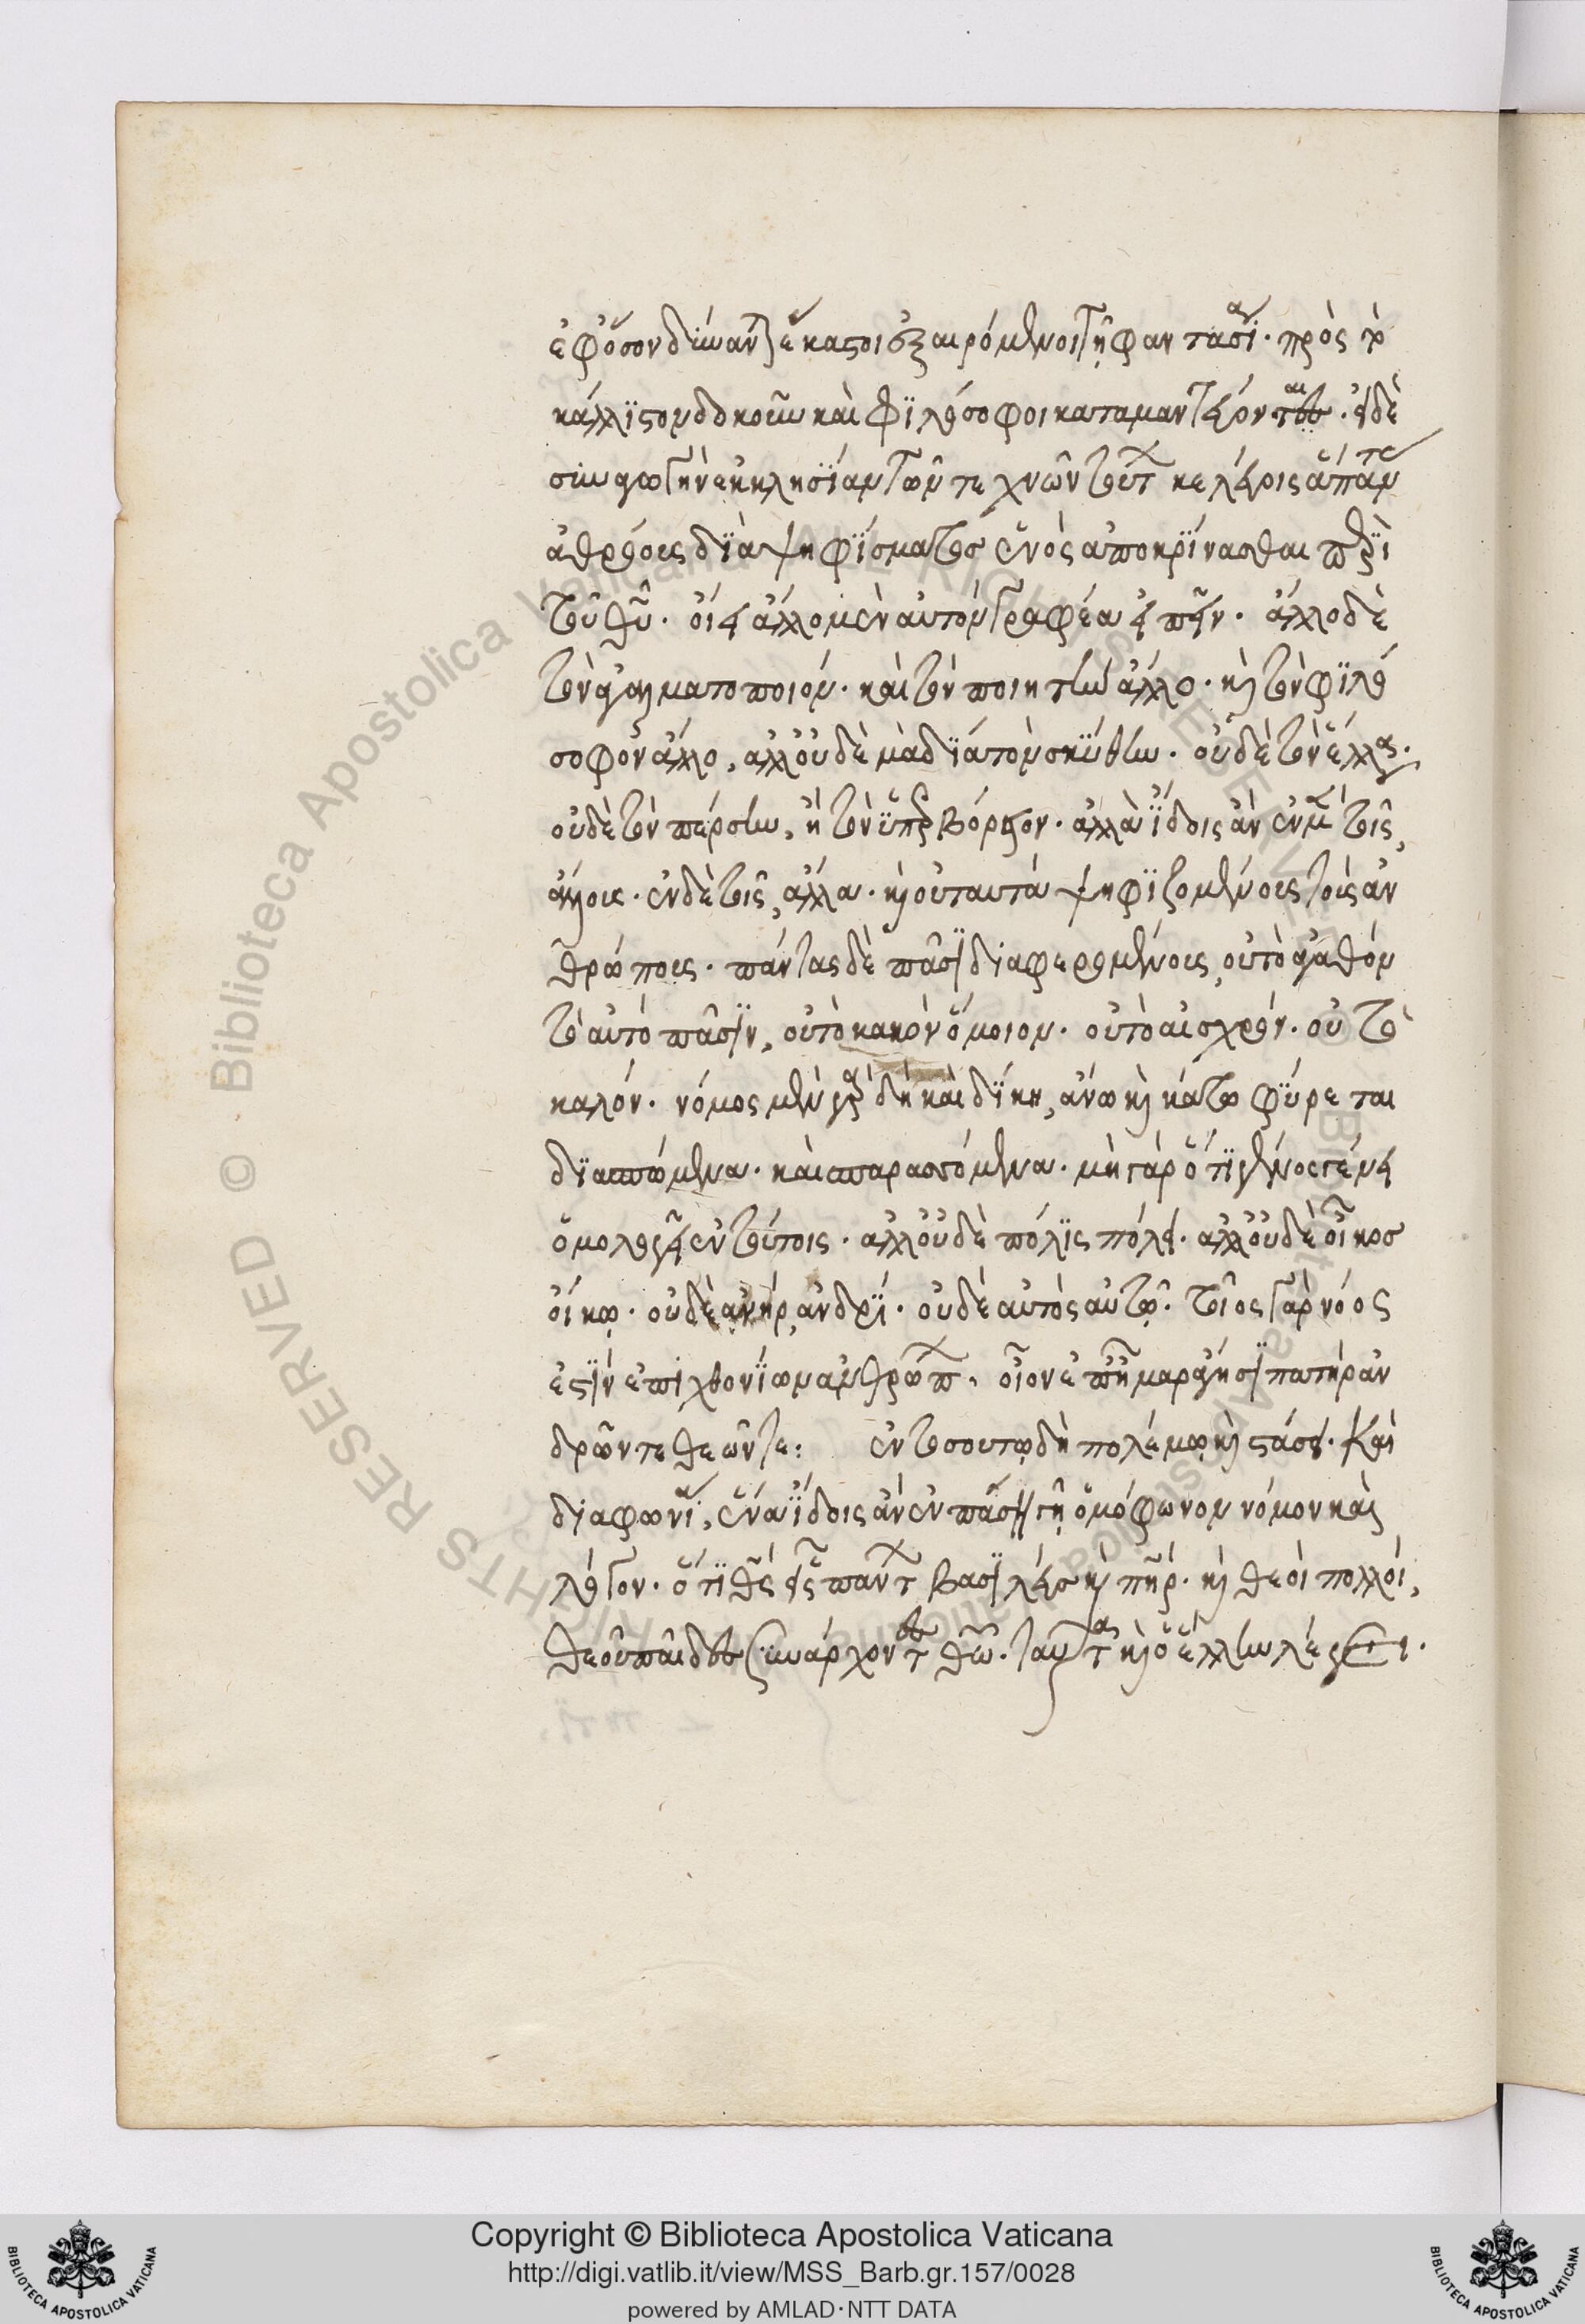 ἐφόσον δύνανται ἕκαστοι ἐξαιρόμενοι τῇ φαντασίᾳ. πρὸς τὸ
κάλλιστον δοκοῦν καὶ φιλόσοφοι καταμαντευόνται. εἰ δὲ
συναγαγὼν ἐκκλησίαν τῶν τεχνῶν τούτων κελεύοις ἅπαντας
ἀθρόους διὰ ψηφίσματος ἑνὸς ἀποκρίνασθαι περὶ
τοῦ θεοῦ. οἴει ἄλλο μὲν ἂν τὸν γραφέα εἰπεῖν. ἄλλο δὲ
τὸν ἀγαλματοποιόν. καὶ τὸν ποιητὴν ἄλλο. καὶ τὸν φιλό
σοφον ἄλλο, ἀλλ' οὐδὲ μὰ δία τὸν σκύθην. οὐδὲ τὸν ἕλληνα.
οὐδὲ τὸν πέρσην, ἢ τὸν ὑπερβόρειον. ἀλλὰ ἴδοις ἂν ἐν μὲν τοῖς
ἄλλοις. ἐν δὲ τοῖς ἄλλα. καὶ οὐ ταυτὰ ψηφιζομένους τοὺς ἀν
θρώπους. πάντας δὲ πᾶσι διαφερομένους, οὐ τὸ ἀγαθὸν
τὸ αὐτὸ πᾶσιν, οὐ τὸ κακὸν ὅμοιον. οὐ τὸ αἰσχρόν. οὐ τὸ
καλόν. νόμος μὲν γὰρ δὴ καὶ δίκη, ἄνω καὶ κάτω φύρεται
διασπώμενα. καὶ σπαρασσόμενα. μὴ γὰρ ὅτι γένος γένει
ὁμολογεῖ ἐν τούτοις. ἀλλ' οὐδὲ πόλις πόλει. ἀλλ' οὐδὲ οἶκος
οἴκῳ. οὐδὲ ἀνὴρ ἀνδρί. οὐδὲ αὐτὸς αὑτῷ. τοῖος γὰρ νόος
ἐστὶν ἐπιχθονίων ἀνθρώπων. οἷον ἐπ' ἦμαρ ἄγησι πατὴρ ἀν
δρῶν τε θεῶν τε: ἐν τοσούτῳ δὴ πολέμῳ καὶ στάσει. καὶ
διαφωνίᾳ, ἕνα ἴδοις ἂν ἐν πάσῃ γῇ ὁμόφωνον νόμον καὶ
λόγον. ὅτι θεὸς εἷς πάντων βασιλεὺς καὶ πατήρ. καὶ θεοὶ πολλοί,
θεοῦ παῖδες συνάρχοντες θεῷ. ταῦτα καὶ ὁ ἕλλην λέγει.
Copyright © Biblioteca Apostolica Vaticana
http://digi.vatlib.it/view/MSS_Barb.gr.157/0028
powered by AMLAD·NTT DATA